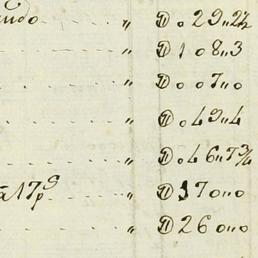 ando " Ⓓ 0 29"2½
" Ⓓ 1 08"3
" Ⓓ 0 07"0
" Ⓓ 0 49"4
" Ⓓ 0 46"7¾
a 17 p^s " Ⓓ 17 0"0
" Ⓓ 26 0"0